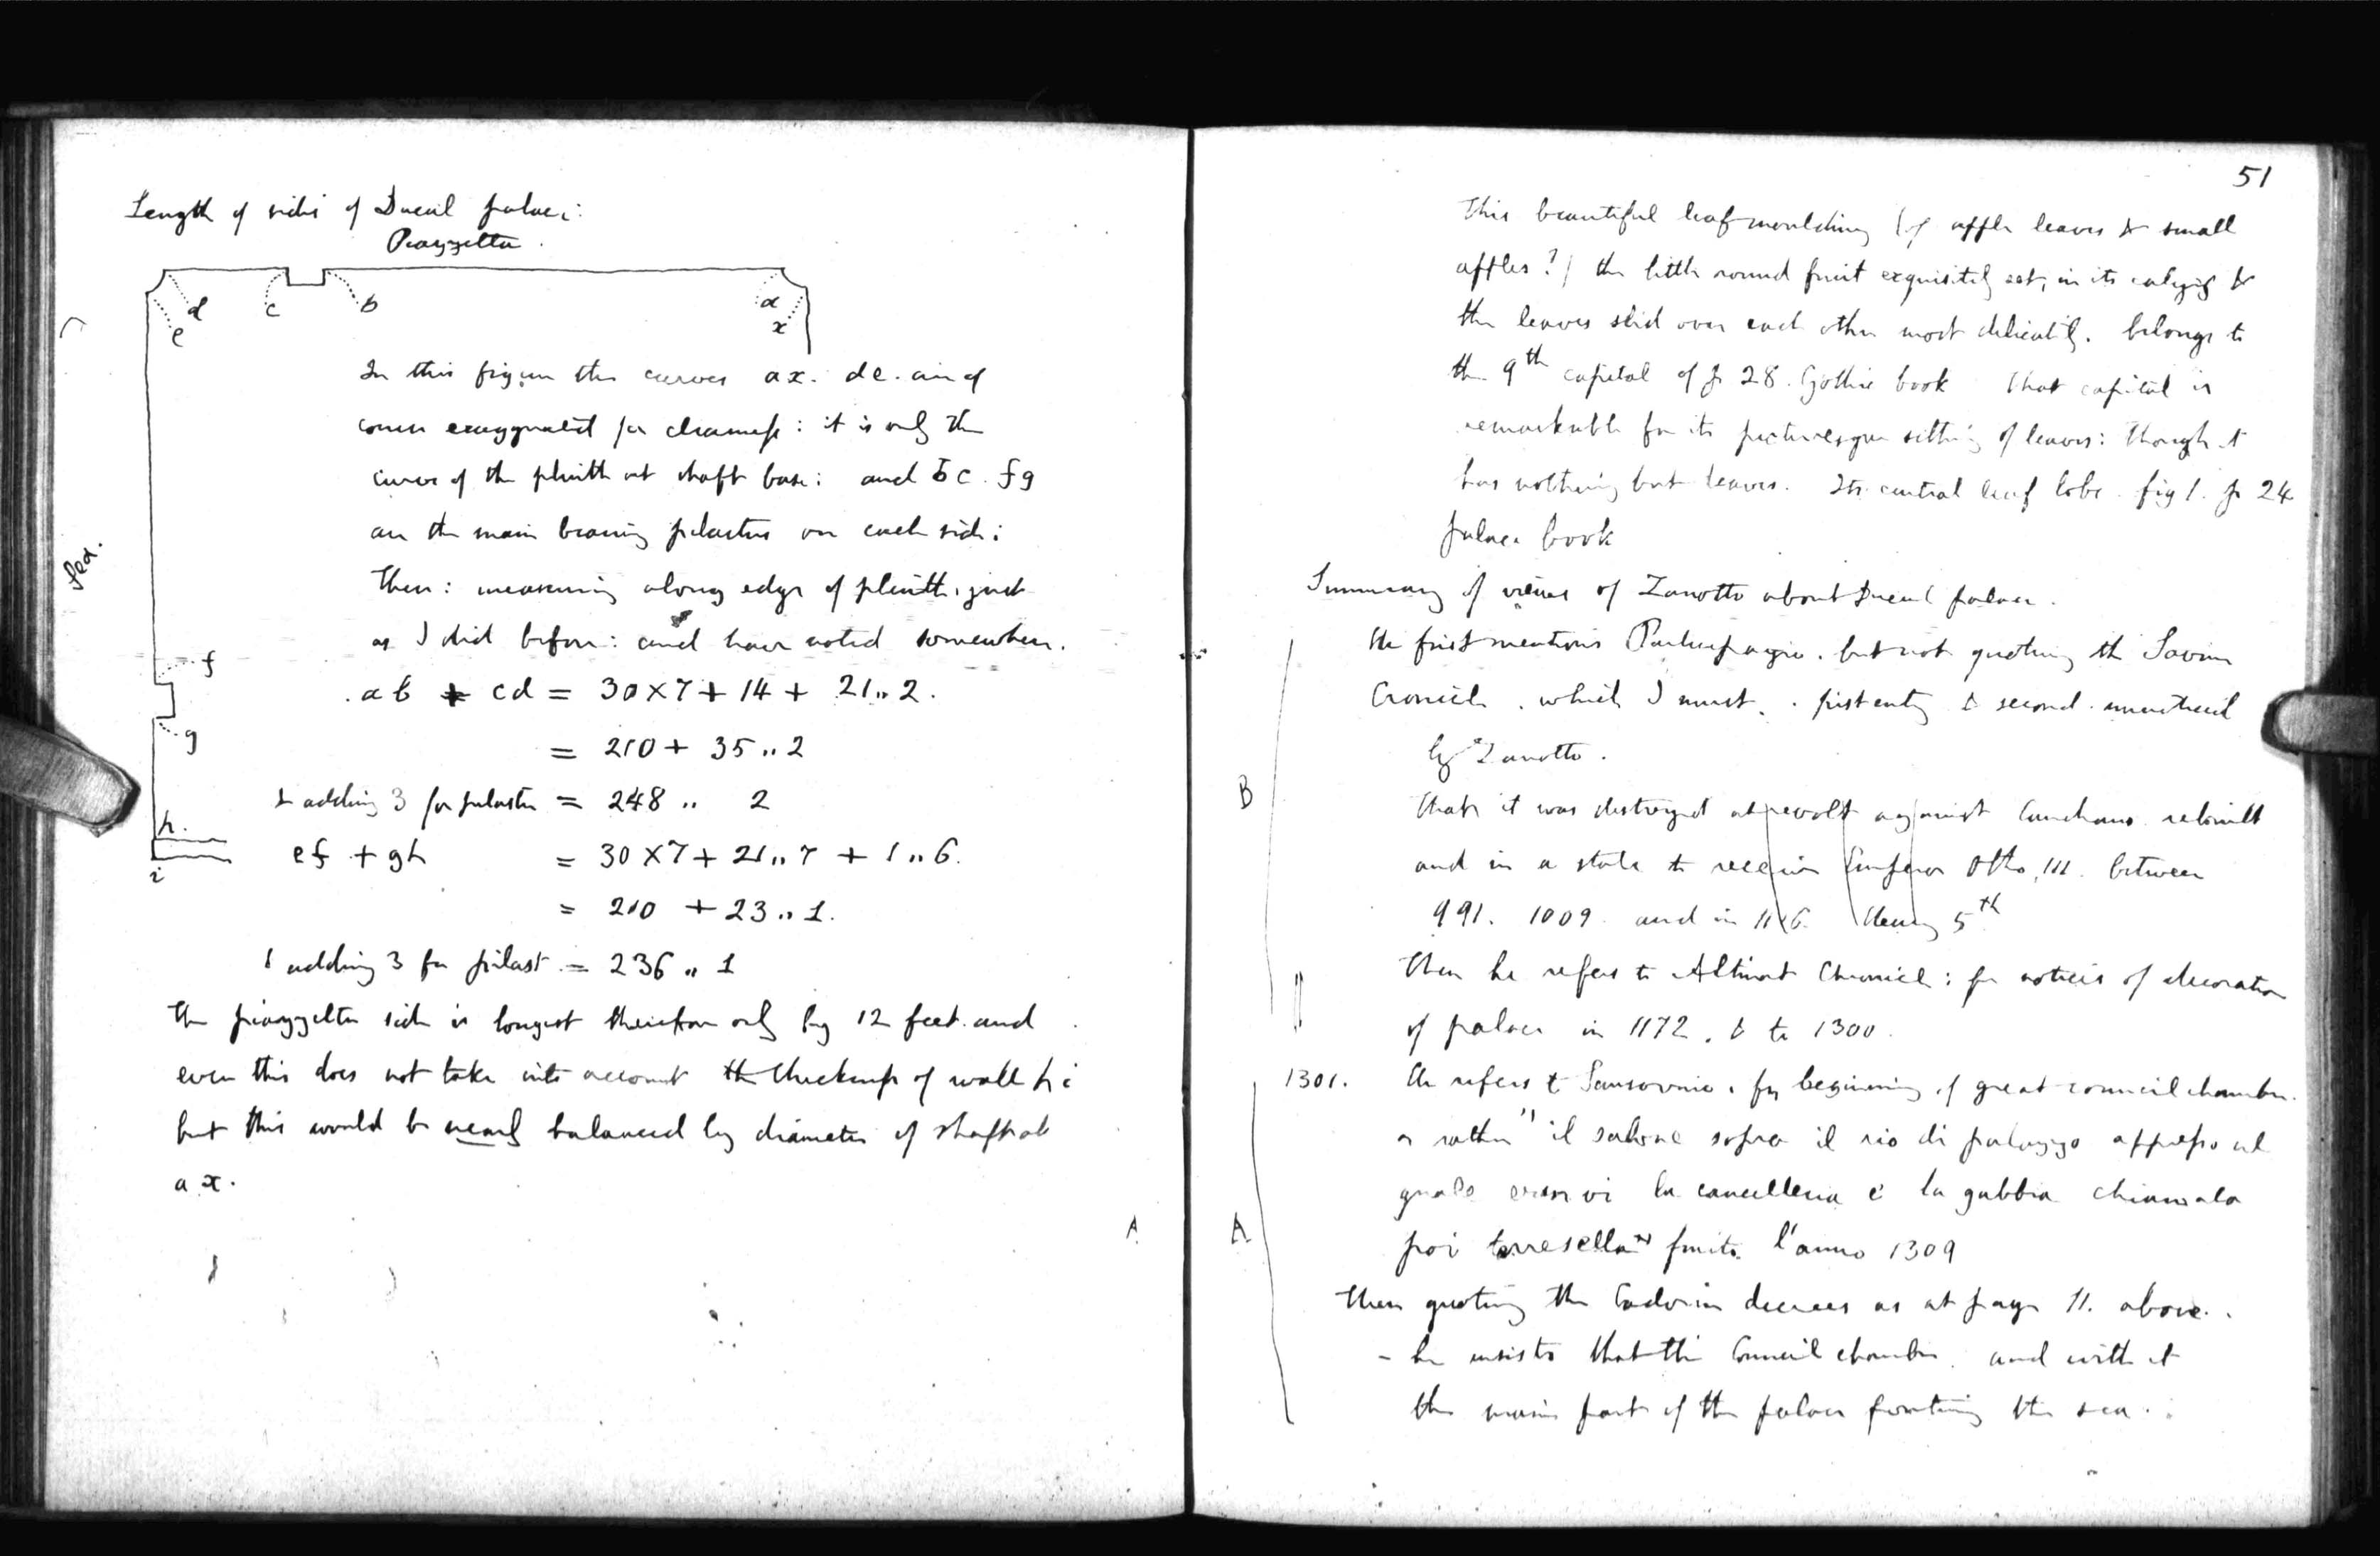 Length of sides of Ducal palace:
Piazzetta.
d c b a
e x
In this figure the curves ax. de. are of
course exaggerated for clearness: it is only the
curve of the plinth at shaft base: and bc. fg
are the main bearing pilasters on each side:
Then: measuring along edge of plinth, just
as I did before: and have noted somewhere.
Sea.
f
ab + cd = 30x7+ 14 + 21,,2.
g
= 210 + 35,,2
& adding 3 for pilaster = 248 ,, 2
h.
ef + gh = 30x7+ 21,,7 + 1,,6.
i
= 210 + 23,,1.
& adding 3 for pilast. = 236,, 1
The piazzetta side is longest therefore only by 12 feet. and
even this does not take into account the thickness of wall hi
but this would be nearly balanced by diameter of shaft at
a x.
A
51
This beautiful leaf moulding (of apple leaves & small
apples?) the little round fruit exquisitely set, in its calyx &
the leaves slid over each other most delicately. belongs to
the 9th capital of p 28. Gothic book That capital is
remarkable for its picturesque setting of leaves: though it
has nothing but leaves. Its central leaf lobe. fig 1. p 24
palace book
Summary of views of Zanotto about Ducal palace.
He first mentions Participazio. but not quoting the
. which I must. . first entry & second
by Zanotto.
B
That it was destroyed at revolt against Candiano rebuilt
and in a state to receive Emperor Otho, III. between
991. 1009. and in 1116. Henry 5th
Then he refers to Altinat Chronicle: for notices of decoration
of palace in 1172. & to 1300.
1301. He refers to Sansovino. for beginning of great council chamber.
or rather " il salone sopra il rio di palazzo appresso al
quale eranvi la cancelleria e la gabbia chiamata
A
poi torresella" finito l'anno 1309
Then quoting the Cadorin decrees as at page 11. above.
- he insists that the Council chamber. and with it
the main part of the palace fronting the sea.